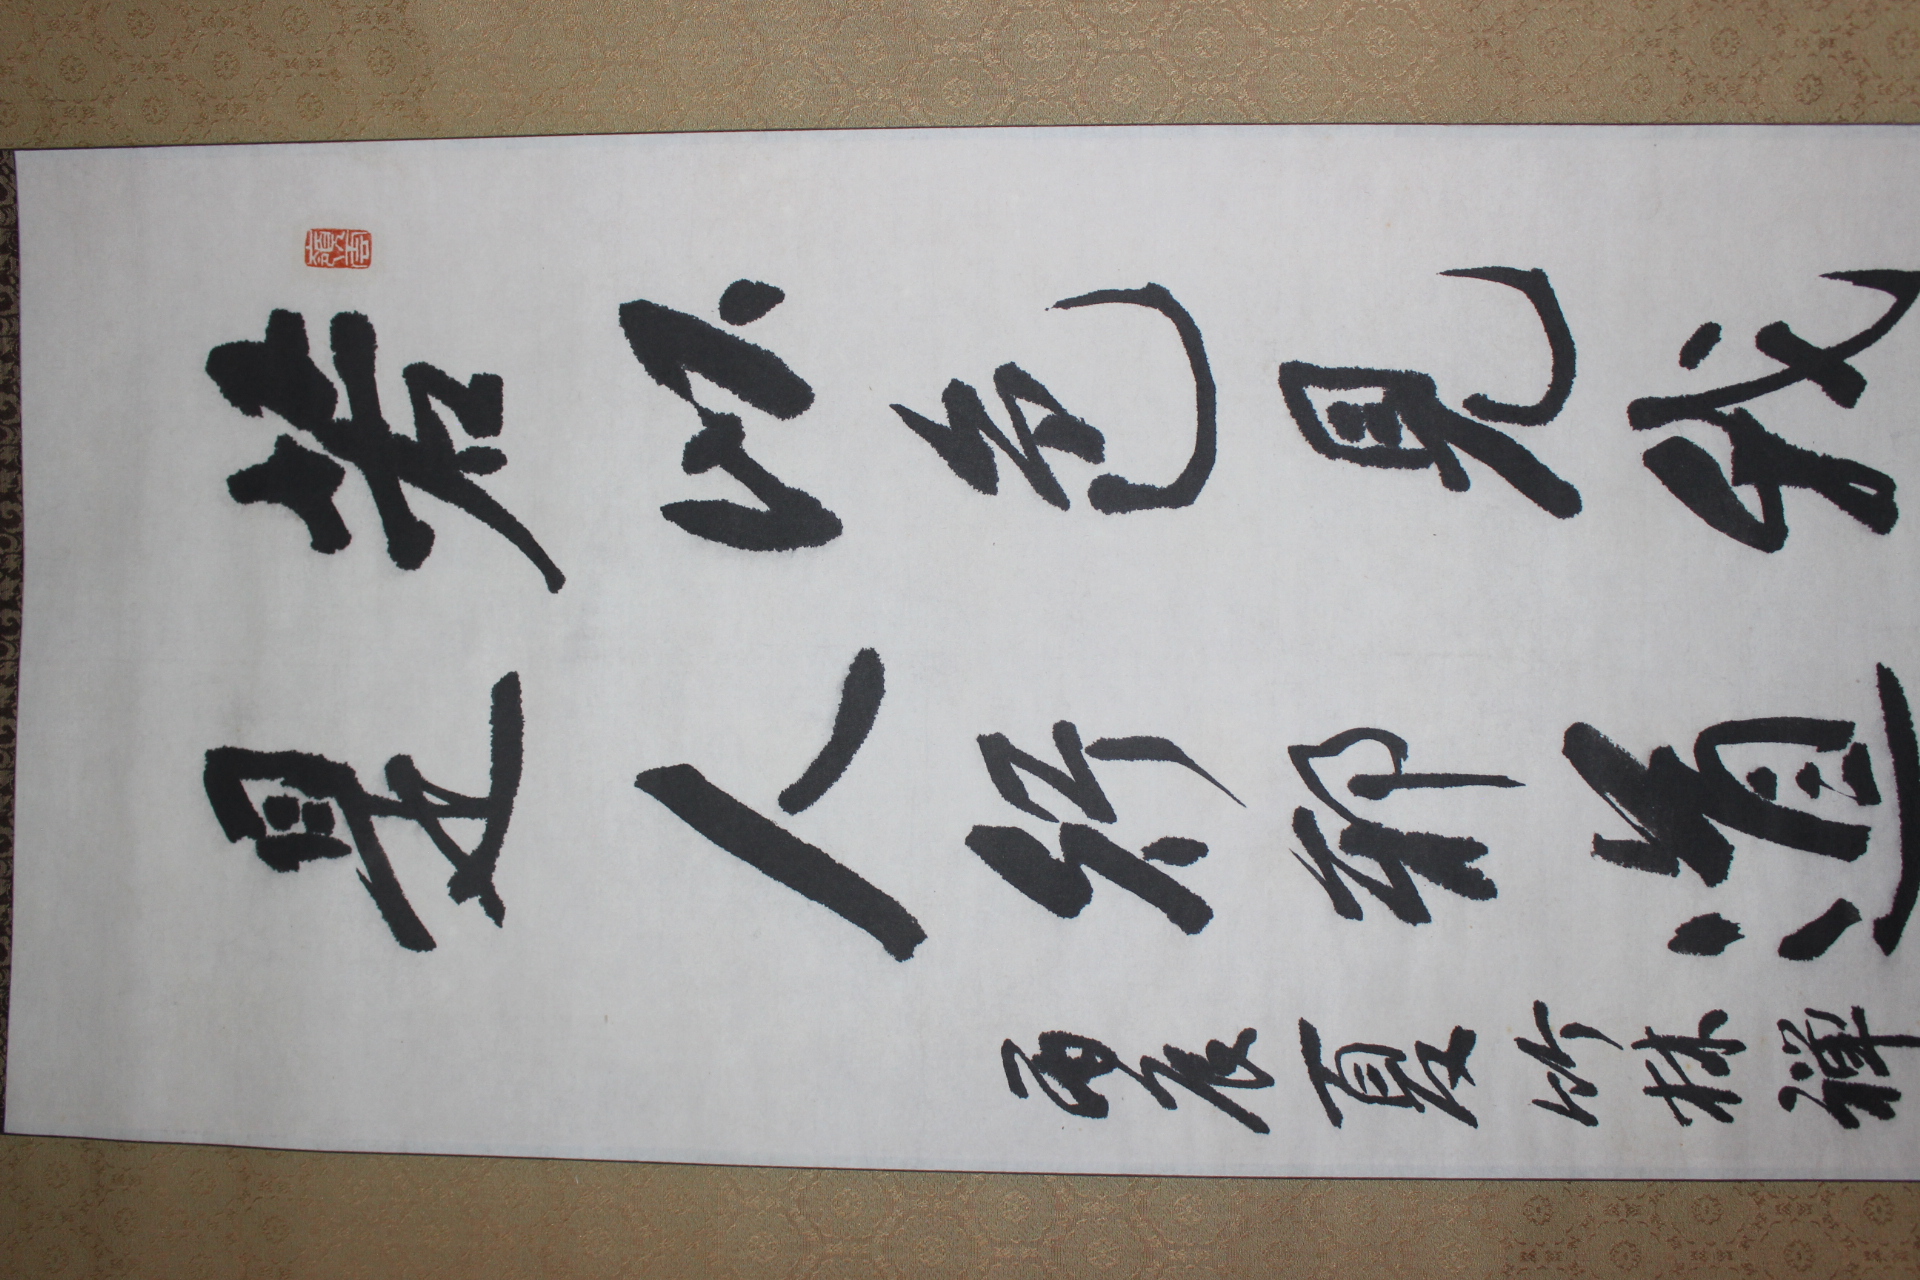 嶺雲
若以色見我
是人行邪道
丙辰夏竹林禅